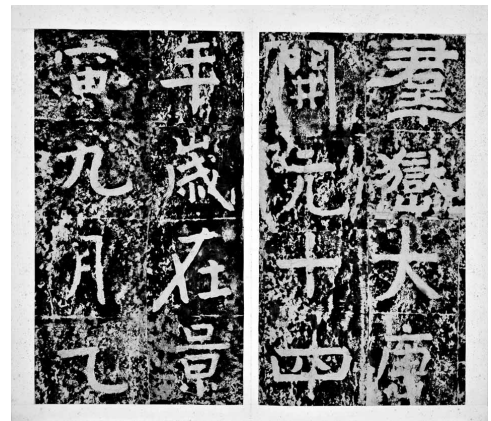 羣嶽大唐
開元十四
年歲在景
寅九月乙